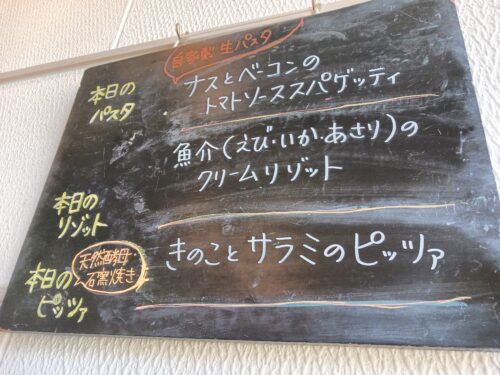 自家製・生パスタ
本日の
パスタ
ナスとベーコンの
トマトソーススパゲッティ
本日の
リゾット
魚介(えび・いか・あさり)の
クリームリゾット
本日の
ピッツァ
天然酵母・
石窯焼き
きのことサラミのピッツァ